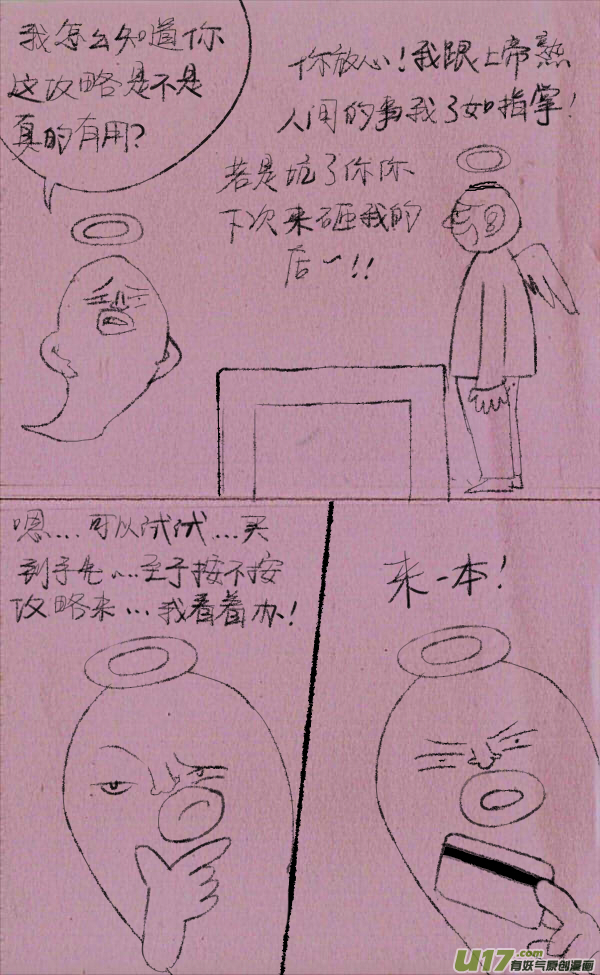 我怎么知道你
这攻略是不是
真的有用?
你放心!我跟上帝熟
人间的事我了如指掌!
若是坑了你你
下次来砸我的
店~!!
嗯....可以试试...买
到手先....至于按不按
攻略来...我看着办!
来一本!
U17.com
有妖气原创漫画